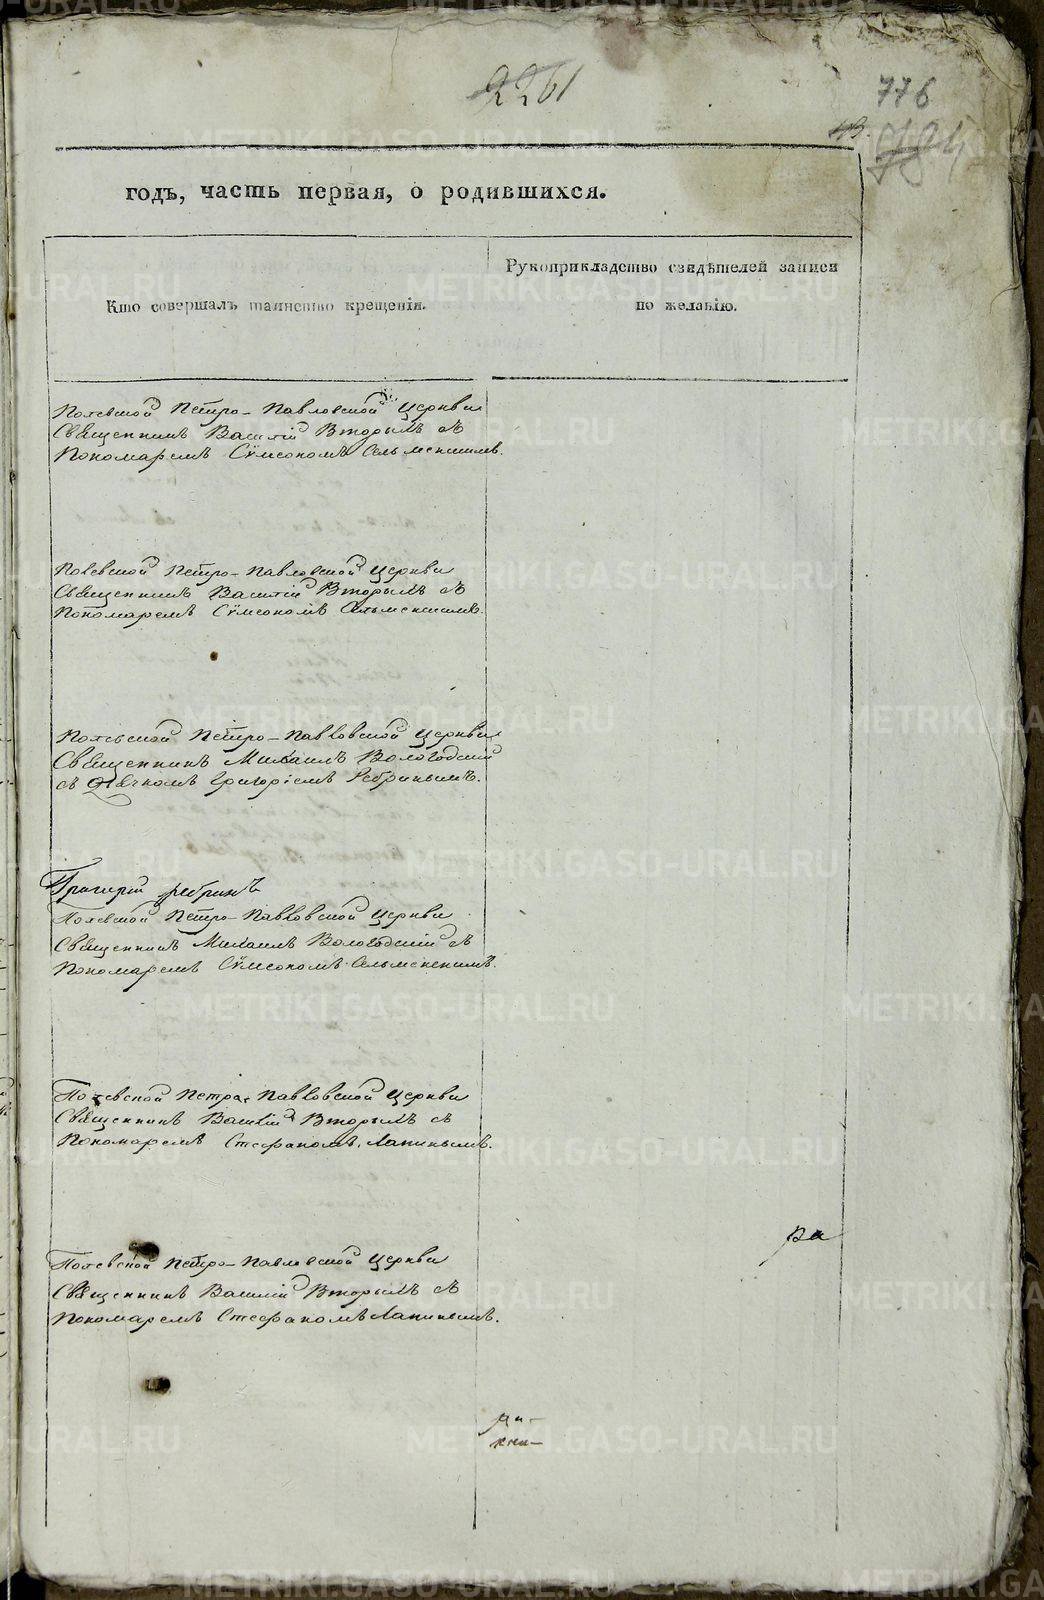 2261
776
годъ, часть первая, о родившихся.
Кто совершалъ таинство крещенія.
Рукоприкладство свидѣтелей записи
по желанію.
Полевской Петро-Павловской Церкви
Священникъ Василій Вторыхъ съ
Пономаремъ Сѵмеономъ Сельменскимъ.
Полевской Петро-Павловской Церкви
Священникъ Василій Вторыхъ съ
Пономаремъ Сѵмеономъ Сельменскимъ.
Полевской Петро-Павловской Церкви
Священникъ Михаилъ Вологодскій
съ Дьячкомъ Григоріемъ Ребринымъ.
Григорій Ребринъ
Полевской Петро-Павловской Церкви
Священникъ Михаилъ Вологодскій съ
Пономаремъ Сѵмеономъ Сельменскимъ.
Полевской Петро-Павловской Церкви
Священникъ Василій Вторыхъ съ
Пономаремъ Стефаномъ Лапинымъ.
ра
Полевской Петро-Павловской Церкви
Священникъ Василій Вторыхъ съ
Пономаремъ Стефаномъ Лапинымъ.
METRIKI.GASO-URAL.RU